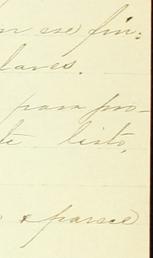 en ese fin:
laves.
para pro-
te listo,
& parsee